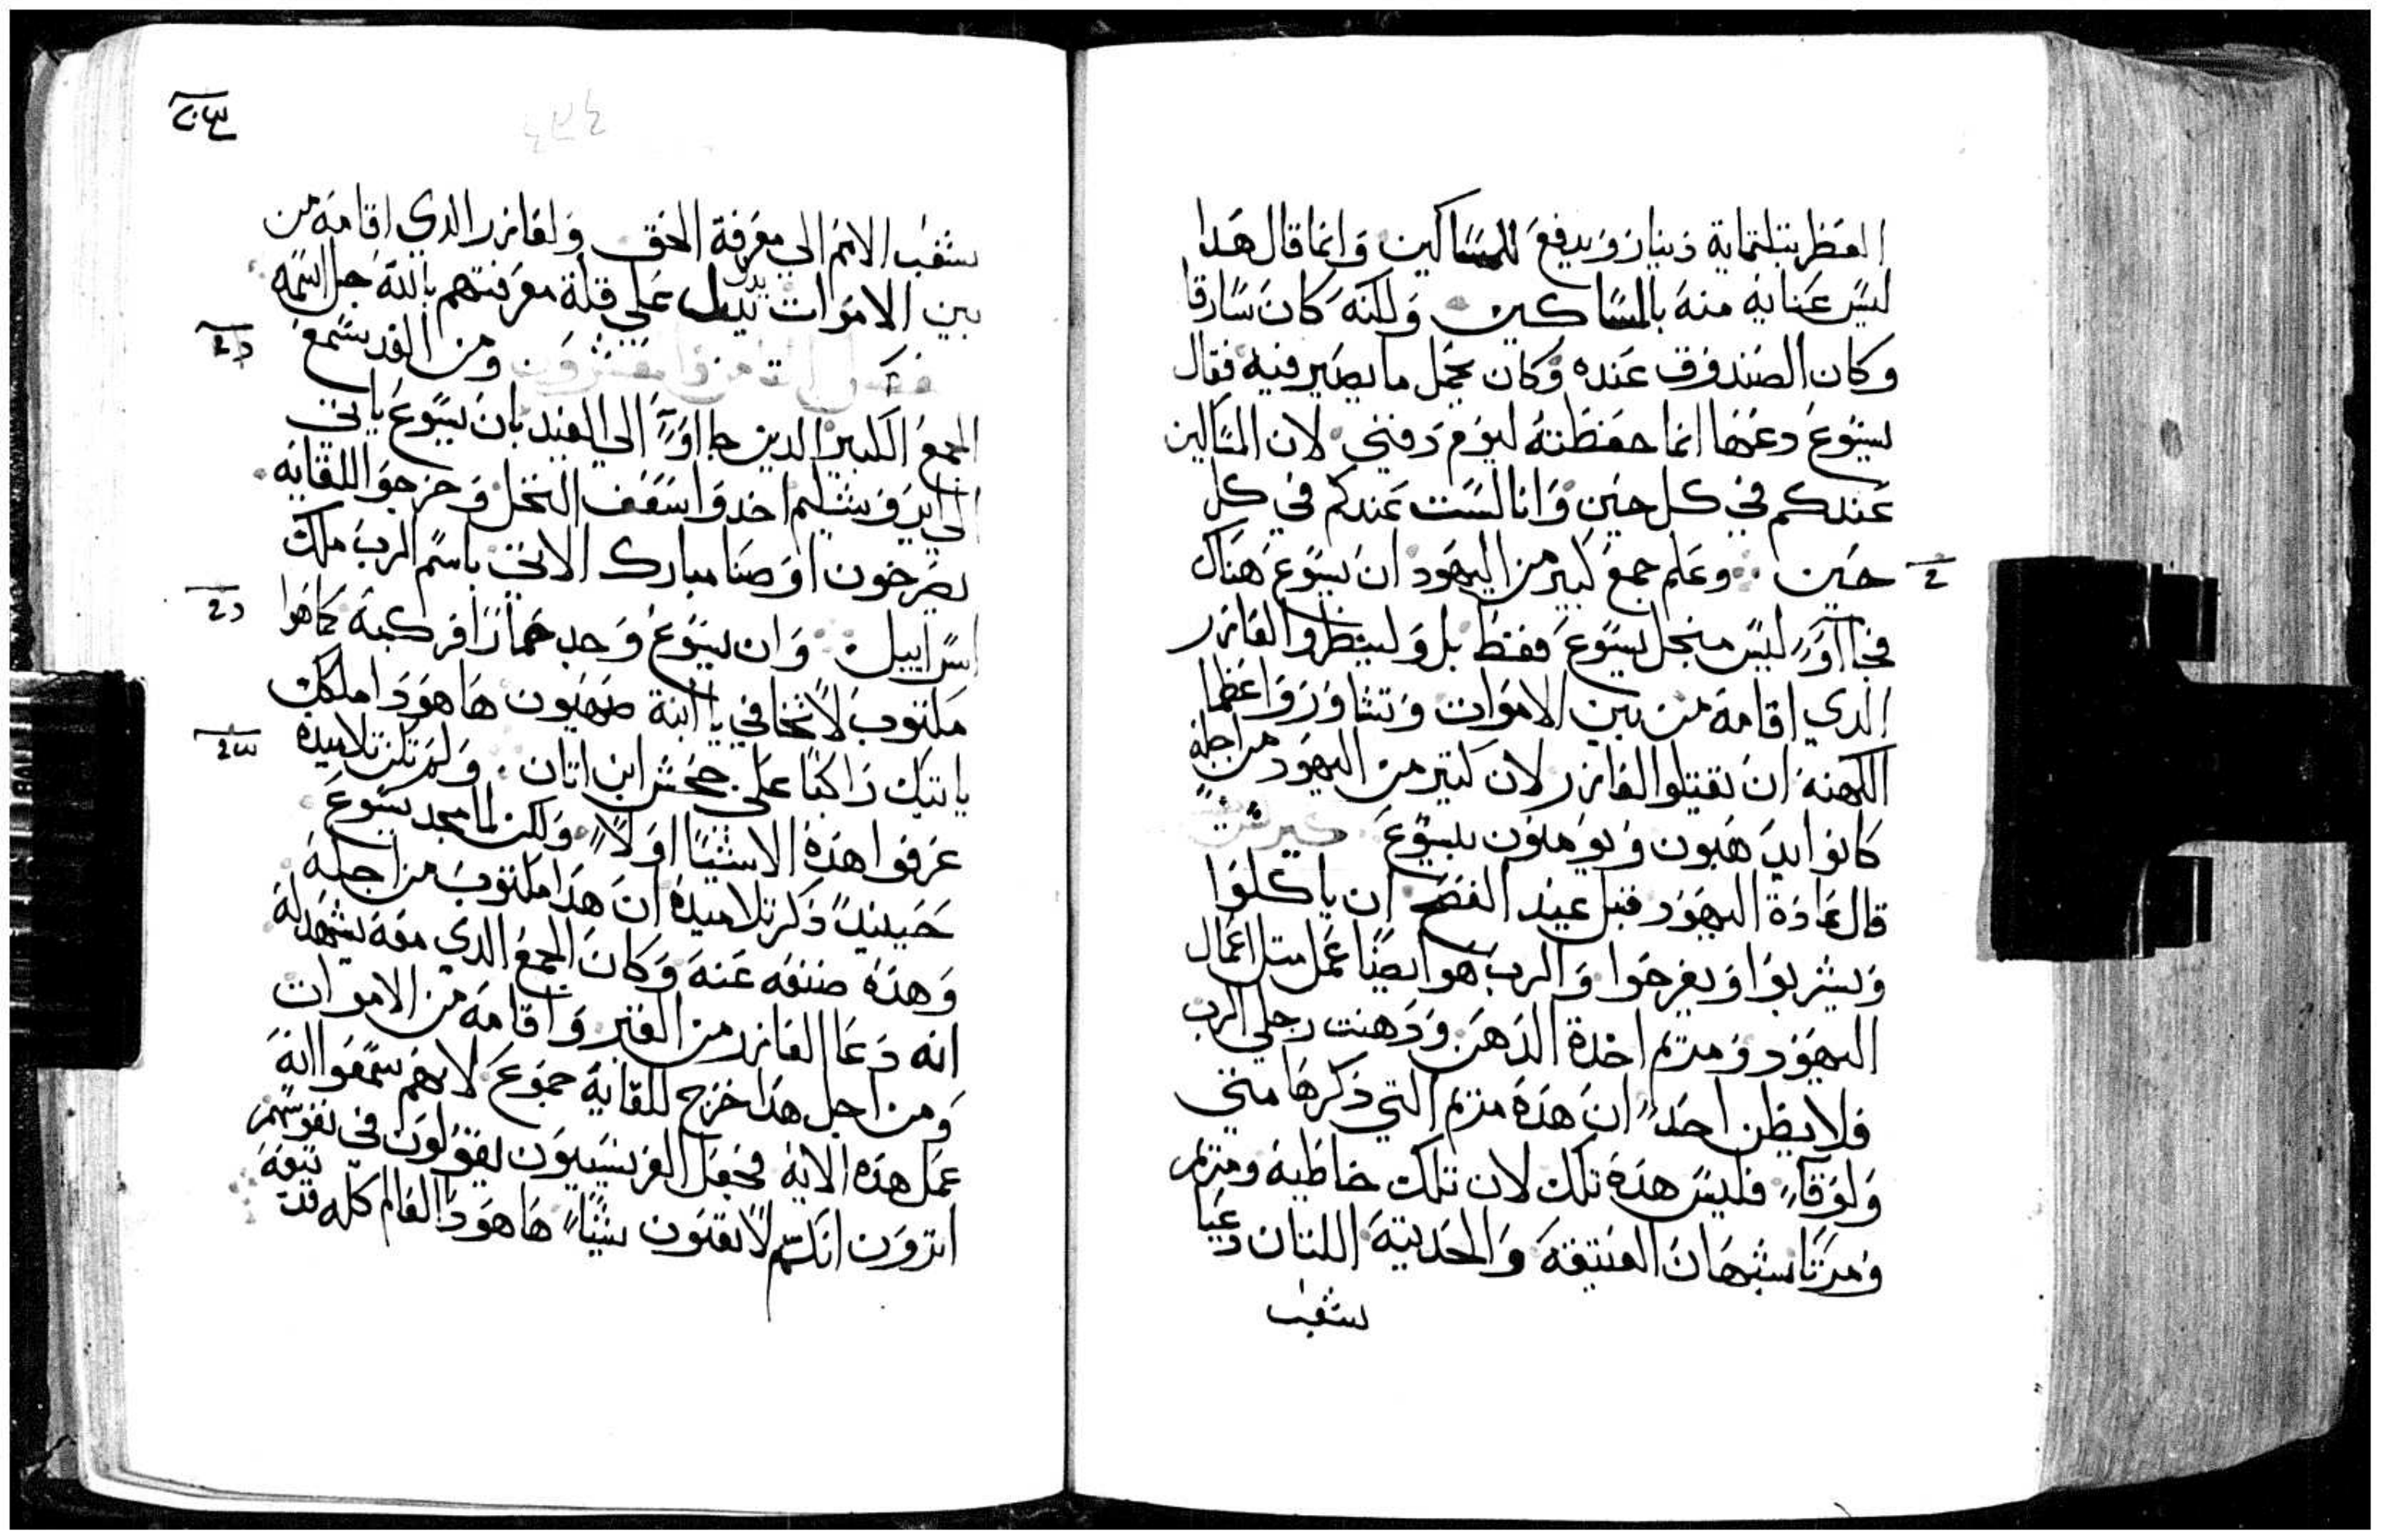 العطر بتلتماية دينار ويدفع للمساكين وانما قال هدا
ليس عنايه منه بالمساكين ولكنه كان سارقا
وكان الصندوق عنده وكان يحمل ما يصير فيه فقال
يسوع دعها انما حفظته ليوم دفني لان المساكين
عندكم في كل حين وانا لست عندكم في كل
حين وعلم جمع كبير من اليهود ان يسوع هناك
فجااوا ليس منجل يسوع فقط بل ولينظروا لعازر
الدي اقامه من بين الاموات وتشاوروا عظما
الكهنه ان يقتلوا لعازر لان كتير من اليهود من اجله
كانوا يدهبون ويومنون بيسوع
قال عادة اليهود قبل عيد الفصح ان ياكلوا
ويشربوا ويفرحوا والرب هو ايضا عمل متل اعمال
اليهود ومريم اخدة الدهن ودهنت رجلي الرب
فلا يظن احد ان هده مريم التي دكرها متي
ولوقا فليس هده تلك لان تلك خاطيه ومريم
ومرتا يشبهان العتيقه والحديته اللتان دعيا
بشعب
بشعب الامم الي معرفة الحق ولعازر الدي اقامه من
بين الاموات يدل علي قلة معرفتهم بالله جل اسمه
ومن الغد سمع
الجمع الكبير الدين جااوا الي العيد بان يسوع ياتي
الي ايروشليم اخدوا سعف النخل وخرجوا للقايه
يصرخون اوصنا مبارك الاتي باسم الرب ملك
اسراييل وان يسوع وجد حمارا فركبه كما هو
مكتوب لا تخافي يا ابنة صهيون ها هودا ملكك
ياتيك راكبا علي جحش ابن اتان ولم تكن تلاميده
عرفوا هده الاشيا اولا ولكن لما مجد يسوع
حينيد دكر تلاميده ان هدا مكتوب من اجله
وهده صنعه عنه وكان الجمع الدي معه يشهد له
انه دعا لعازر من القبر واقامه من الاموات
ومن اجل هدا خرج للقايه جموع لانهم سمعوا انه
عمل هده الايه فجعل الفريسييون يقولون في نفوسهم
اترون انكم لا تقنون شيا ها هودا العالم كله قد تبعه